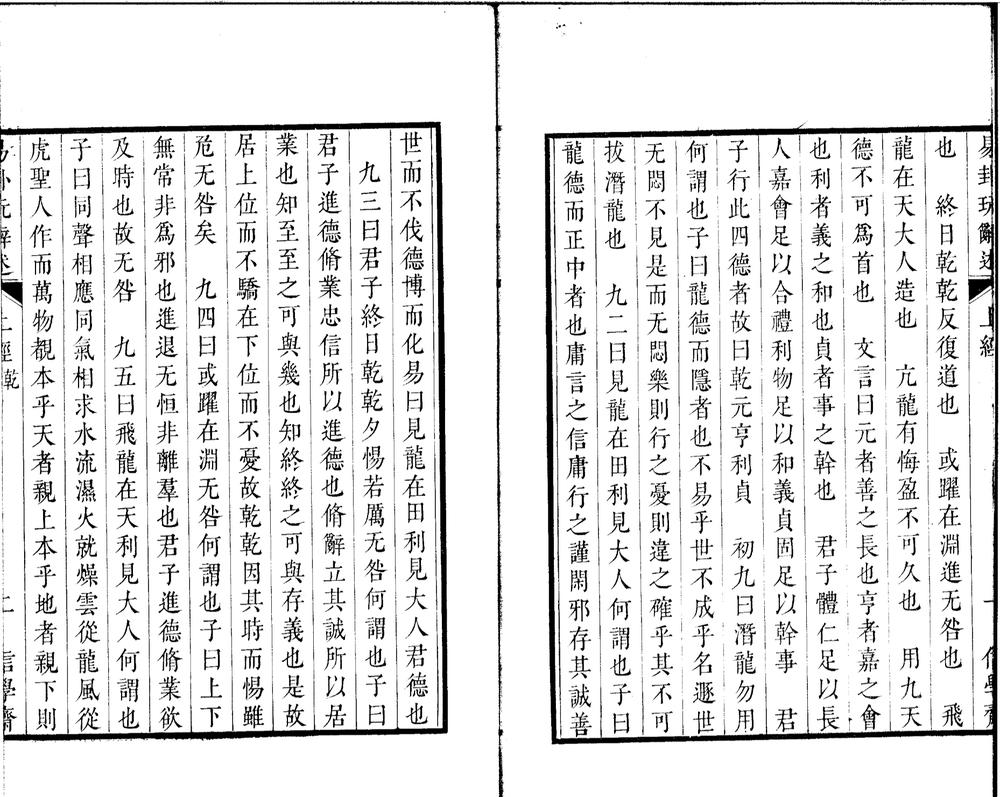 易卦玩辭述 上經 一 信學齋
也　終日乾乾反復道也　或躍在淵進无咎也　飛
龍在天大人造也　亢龍有悔盈不可久也　用九天
德不可爲首也　文言曰元者善之長也亨者嘉之會
也利者義之和也貞者事之幹也　君子體仁足以長
人嘉會足以合禮利物足以和義貞固足以幹事　君
子行此四德者故曰乾元亨利貞　初九曰潛龍勿用
何謂也子曰龍德而隱者也不易乎世不成乎名遯世
无悶不見是而无悶樂則行之憂則違之確乎其不可
拔潛龍也　九二曰見龍在田利見大人何謂也子曰
龍德而正中者也庸言之信庸行之謹閑邪存其誠善
世而不伐德博而化易曰見龍在田利見大人君德也
九三曰君子終日乾乾夕惕若厲无咎何謂也子曰
君子進德脩業忠信所以進德也脩辭立其誠所以居
業也知至至之可與幾也知終終之可與存義也是故
居上位而不驕在下位而不憂故乾乾因其時而惕雖
危无咎矣　九四曰或躍在淵无咎何謂也子曰上下
無常非爲邪也進退无恒非離羣也君子進德脩業欲
及時也故无咎　九五曰飛龍在天利見大人何謂也
子曰同聲相應同氣相求水流濕火就燥雲從龍風從
虎聖人作而萬物覩本乎天者親上本乎地者親下則
易卦玩辭述 上經 乾 二 信學齋